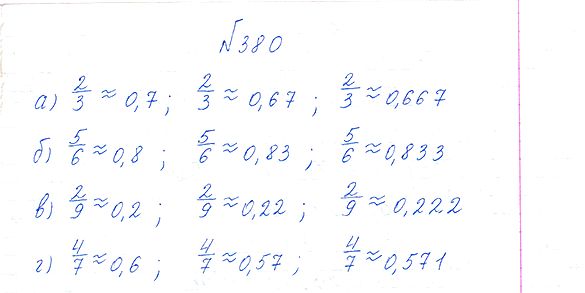 №380
а) 2/3 ≈ 0,7 ; 2/3 ≈ 0,67 ; 2/3 ≈ 0,667
б) 5/6 ≈ 0,8 ; 5/6 ≈ 0,83 ; 5/6 ≈ 0,833
в) 2/9 ≈ 0,2 ; 2/9 ≈ 0,22 ; 2/9 ≈ 0,222
г) 4/7 ≈ 0,6 ; 4/7 ≈ 0,57 ; 4/7 ≈ 0,571